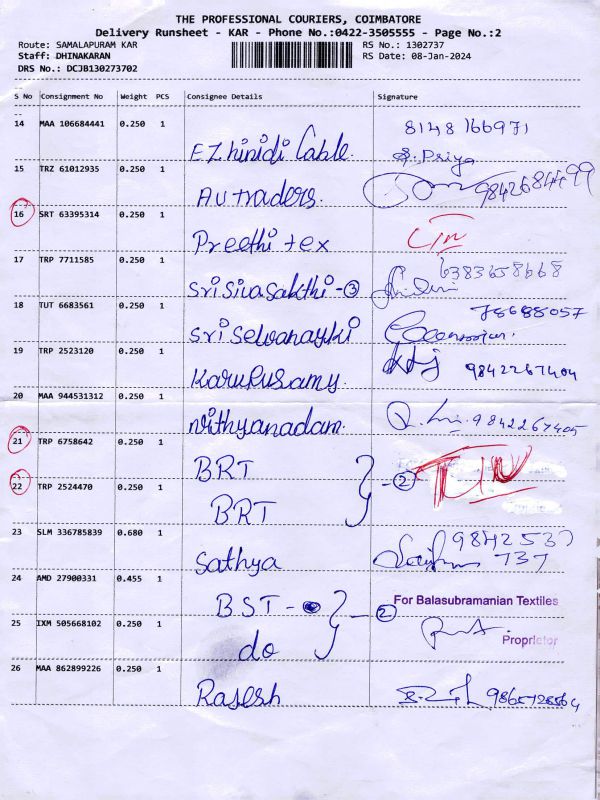 THE PROFESSIONAL COURIERS, COIMBATORE
Delivery Runsheet - KAR - Phone No.:0422-3505555 - Page No.:2
Route: SAMALAPURAM KAR RS No.: 1302737
Staff: DHINAKARAN RS Date: 08-Jan-2024
DRS No.: DCJB130273702
S No Consignment No Weight PCS Consignee Details Signature
14 MAA 106684441 0.250 1 Ezhinidi Cable. 8148166971
S. Priya
15 TRZ 61012935 0.250 1 AU traders. 9842684499
16 SRT 63395314 0.250 1 Preethi tex
17 TRP 7711585 0.250 1 Srisivasakthi - 3 6383658668
18 TUT 6683561 0.250 1 Sriselvanayki 78688057
19 TRP 2523120 0.250 1 Karuppusamy. 9842267404
20 MAA 944531312 0.250 1 nithyanadam. 9842267405
21 TRP 6758642 0.250 1 BRT
22 TRP 2524470 0.250 1 BRT - 2
23 SLM 336785839 0.680 1 Sathya 9842537
737
24 AMD 27900331 0.455 1 BST - 2 For Balasubramanian Textiles
25 IXM 505668102 0.250 1 do Proprietor
26 MAA 862899226 0.250 1 Rajesh